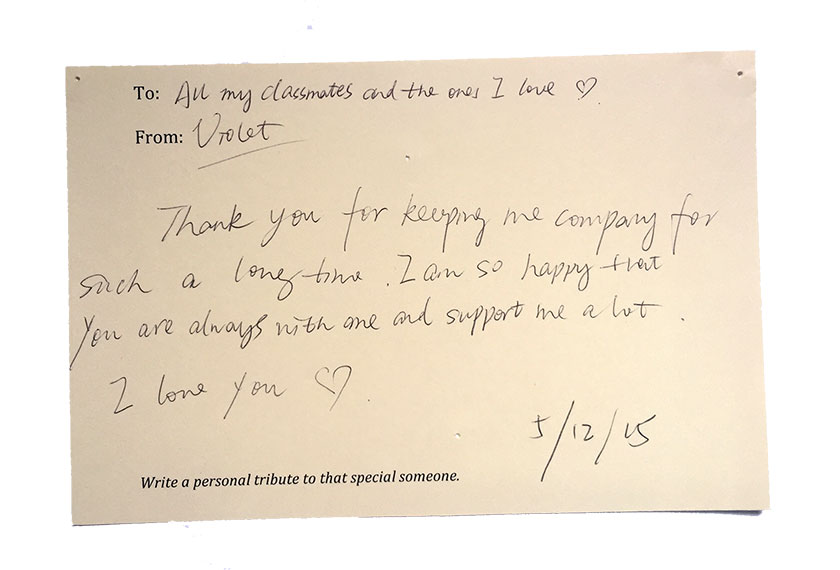 To: All my classmates and the ones I love ♡
From: Violet
Thank you for keeping me company for
such a long time. I am so happy that
You are always with me and support me a lot.
I love you ♡.
5/12/15
Write a personal tribute to that special someone.